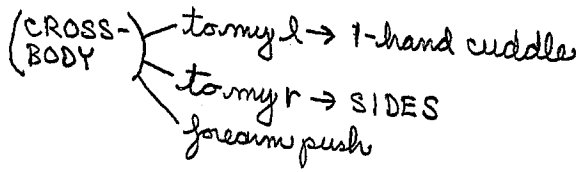 (CROSS-BODY)
to my l → 1-hand cuddle
to my r → SIDES
forearm push